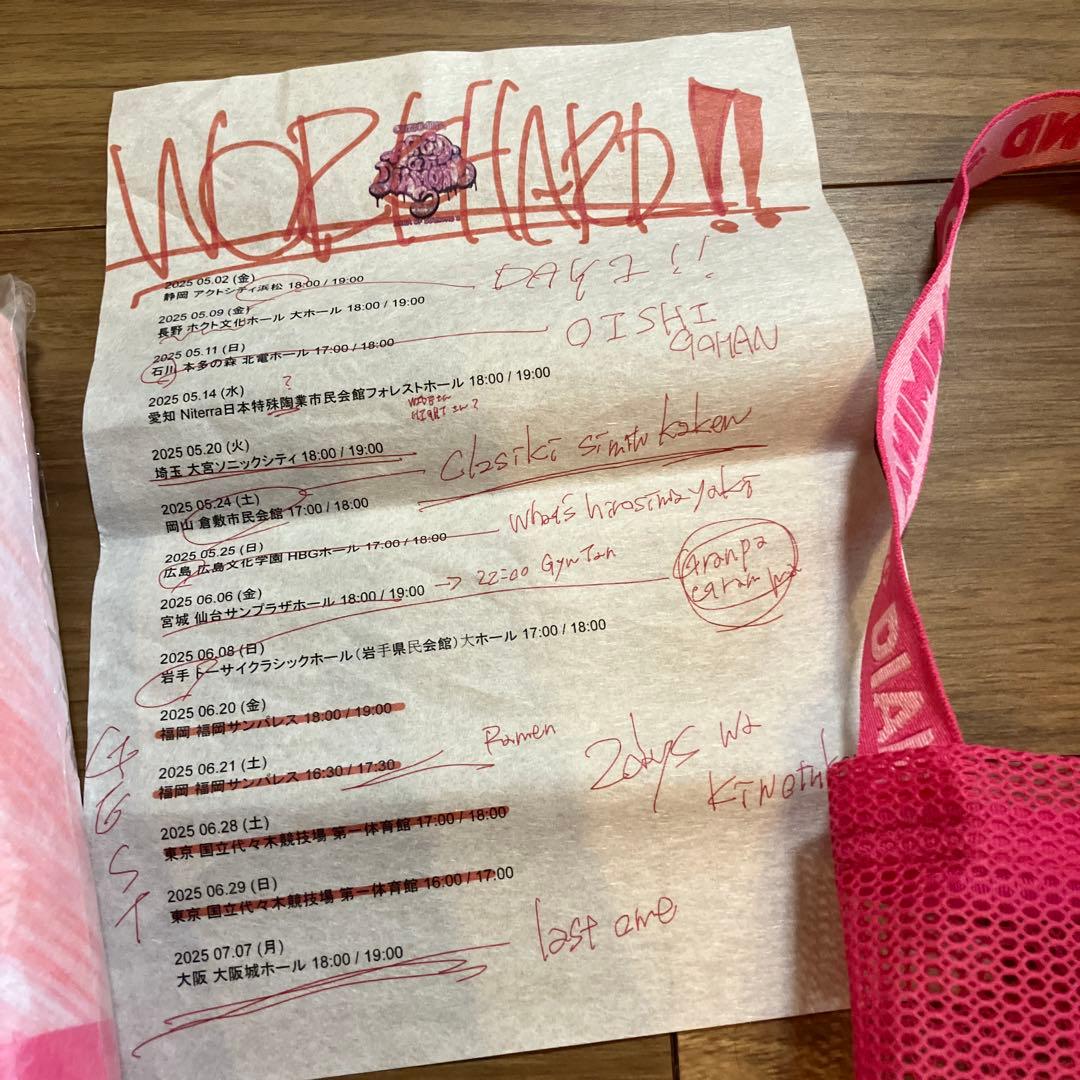 WORK HARD!!
2025 05.02 (金)
静岡 アクトシティ浜松 18:00 / 19:00
DAY 1!!
2025 05.09 (金)
長野 ホクト文化ホール 大ホール 18:00 / 19:00
OISHI
GOHAN
2025 05.11 (日)
石川 本多の森 北電ホール 17:00 / 18:00
2025 05.14 (水)
?
愛知 Niterra日本特殊陶業市民会館フォレストホール 18:00 / 19:00
2025 05.20 (火)
埼玉 大宮ソニックシティ 18:00 / 19:00
2025 05.24 (土)
岡山 倉敷市民会館 17:00 / 18:00
2025 05.25 (日)
広島 広島文化学園 HBGホール 17:00 / 18:00
2025 06.06 (金)
宮城 仙台サンプラザホール 18:00 / 19:00
→ 22:00 GyuTan
2025 06.08 (日)
岩手 トーサイクラシックホール（岩手県民会館）大ホール 17:00 / 18:00
2025 06.20 (金)
福岡 福岡サンパレス 18:00 / 19:00
2025 06.21 (土)
福岡 福岡サンパレス 16:30 / 17:30
Ramen
2days wa
2025 06.28 (土)
東京 国立代々木競技場 第一体育館 17:00 / 18:00
2025 06.29 (日)
東京 国立代々木競技場 第一体育館 16:00 / 17:00
2025 07.07 (月)
大阪 大阪城ホール 18:00 / 19:00
last one